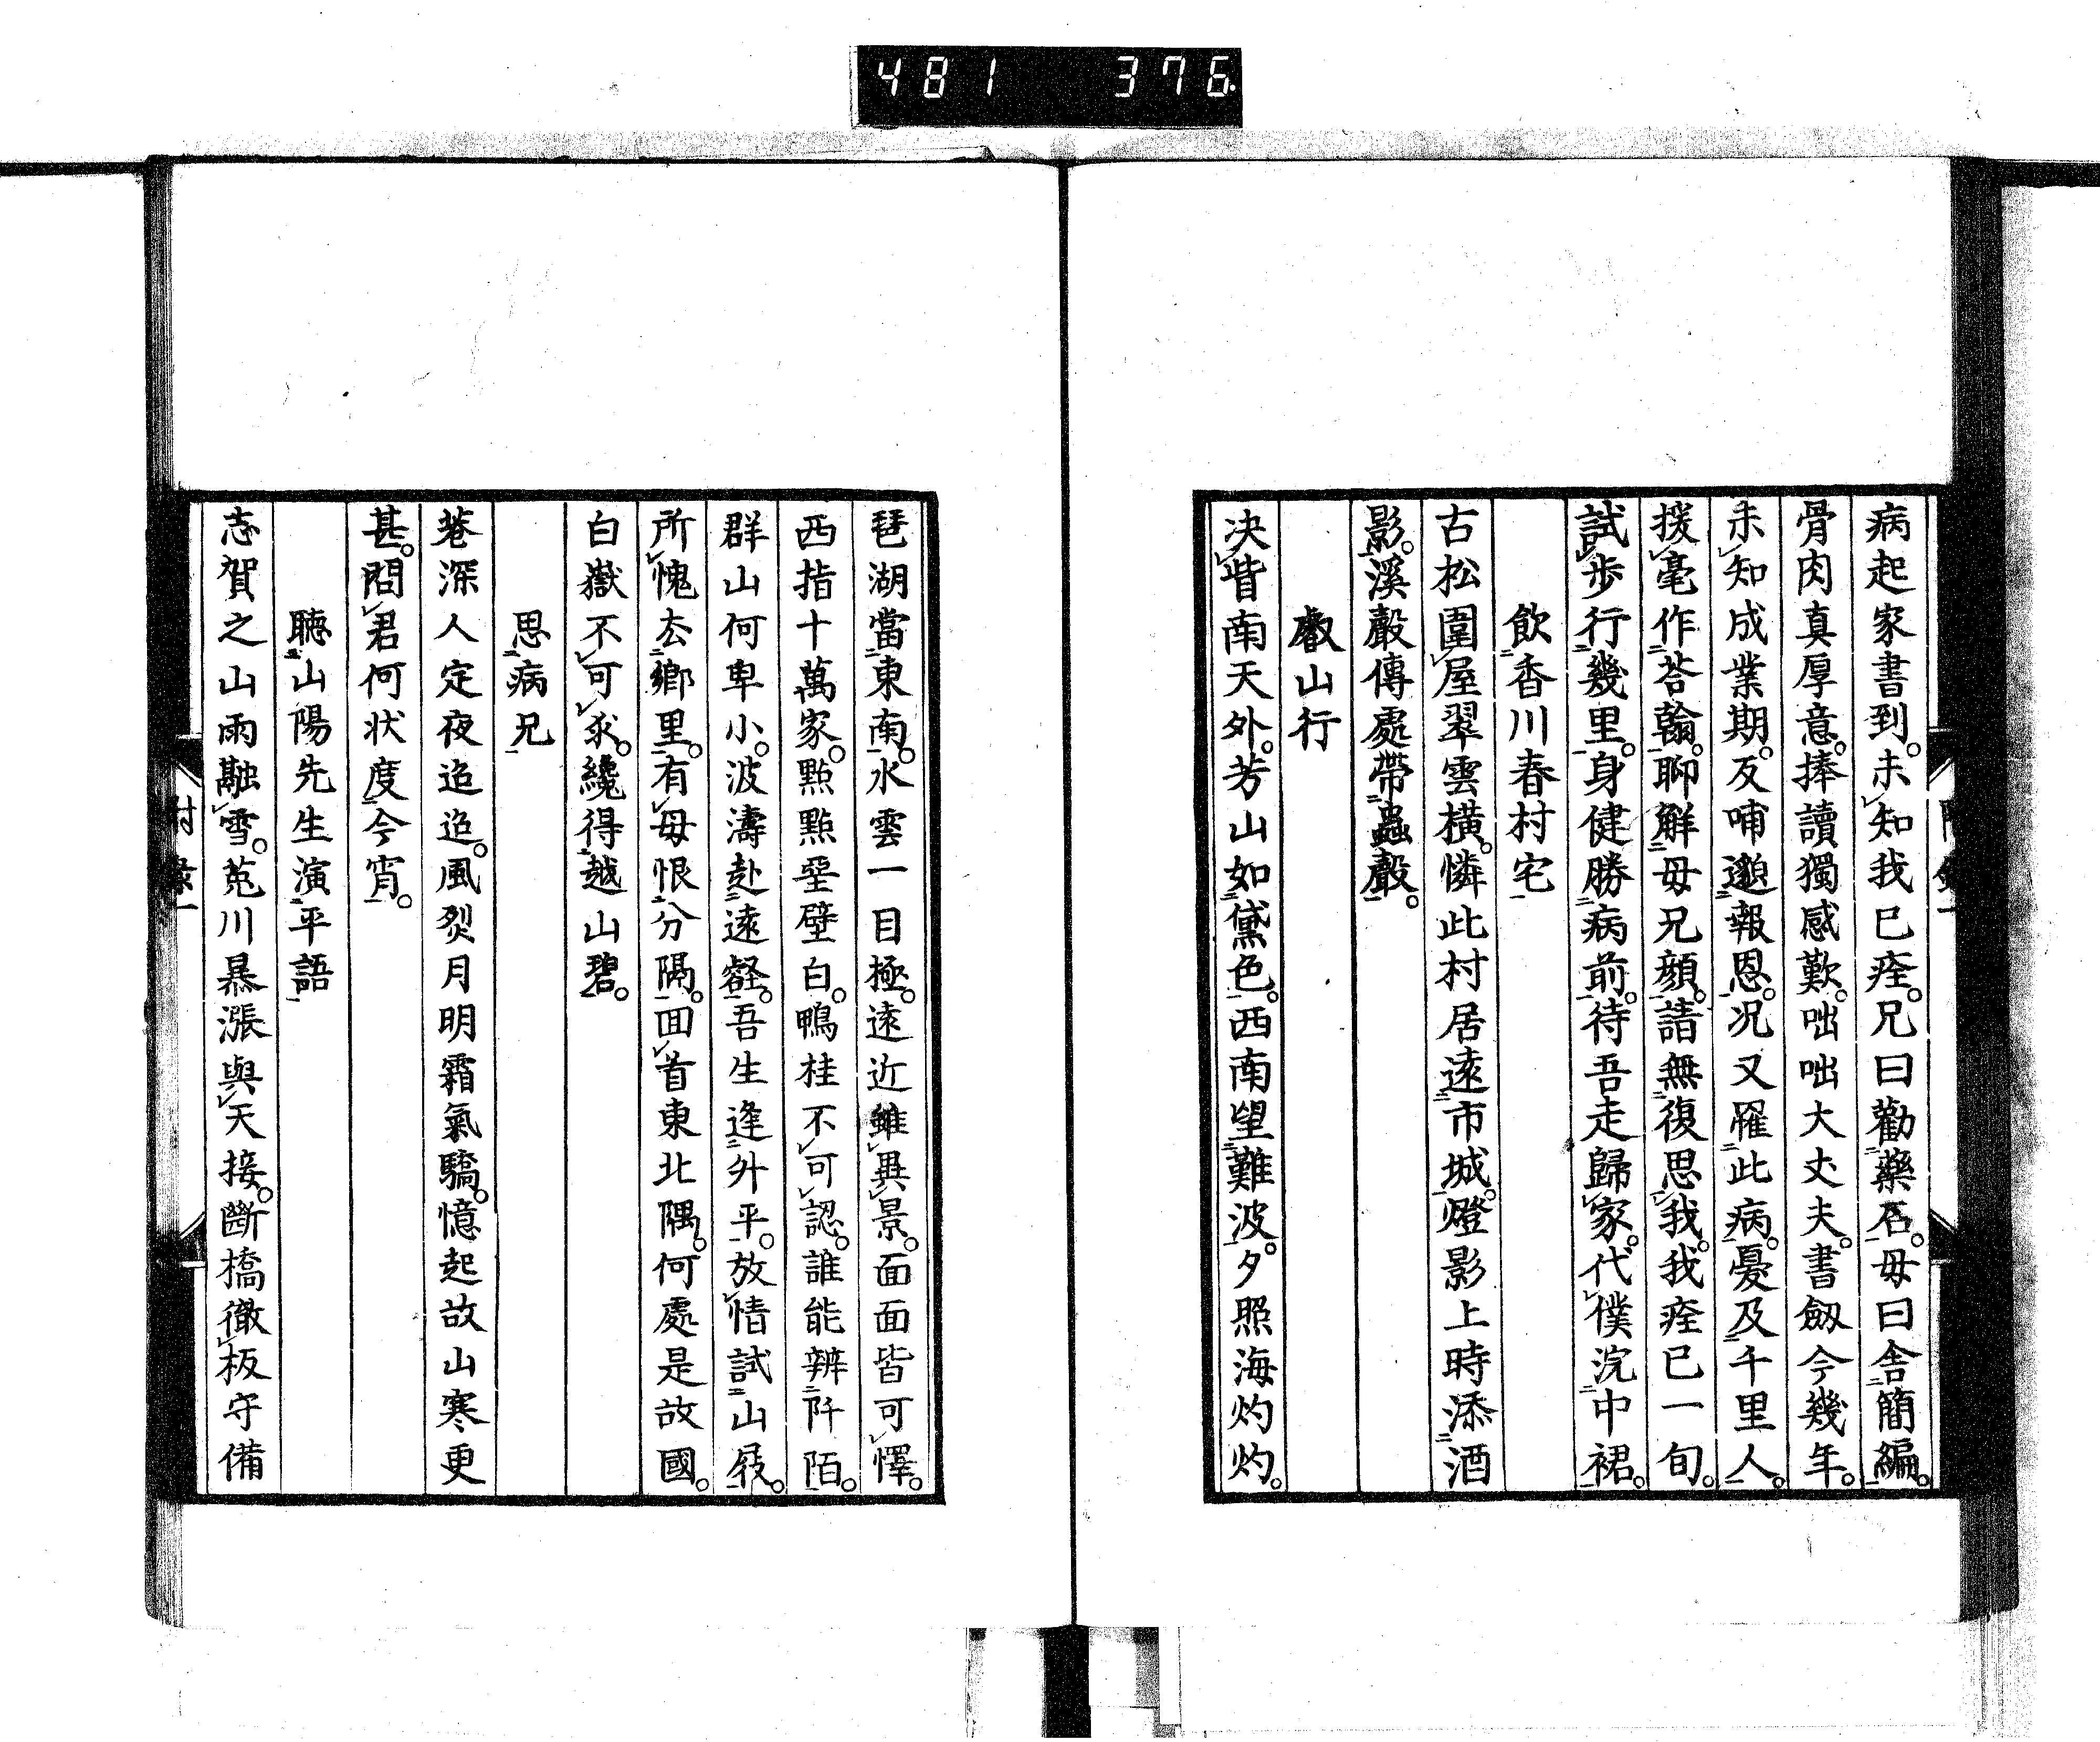 481 376
病起家書到。未知我已痊。兄曰勸藥石。母曰舎簡編。
骨肉真厚意。捧讀獨感歎。咄咄大丈夫。書劔今幾年。
未知成業期。反哺邈報恩。况又罹此病。憂及千里人。
援毫作荅翰。聊觧母兄顔。請無復思我。我痊已一旬。
試歩行幾里。身健勝病前。待吾走歸家。代僕浣中裙。
飲香川春村宅
古松圍屋翠雲横。憐此村居遠市城。燈影上時添酒
影。溪聲傳處帶蟲聲。
叡山行
决眥南天外。芳山如黛色。西南望難波。夕照海灼灼。
琶湖當東南。水雲一目極。遠近雖異景。面面皆可懌。
西指十萬家。點點堊壁白。鴨桂不可認。誰能辨阡陌。
群山何卑小。波濤赴遠壑。吾生逢外平。放情試山屐。
所愧去鄉里。有母恨分隔。回首東北隅。何處是故國。
白嶽不可求。纔得越山碧。
思病兄
巷深人定夜迢迢。風烈月明霜氣驕。憶起故山寒更
甚。問君何状度今宵。
聴山陽先生演平語
志賀之山雨融雪。菟川暴漲與天接。斷橋徹板守備
附錄一